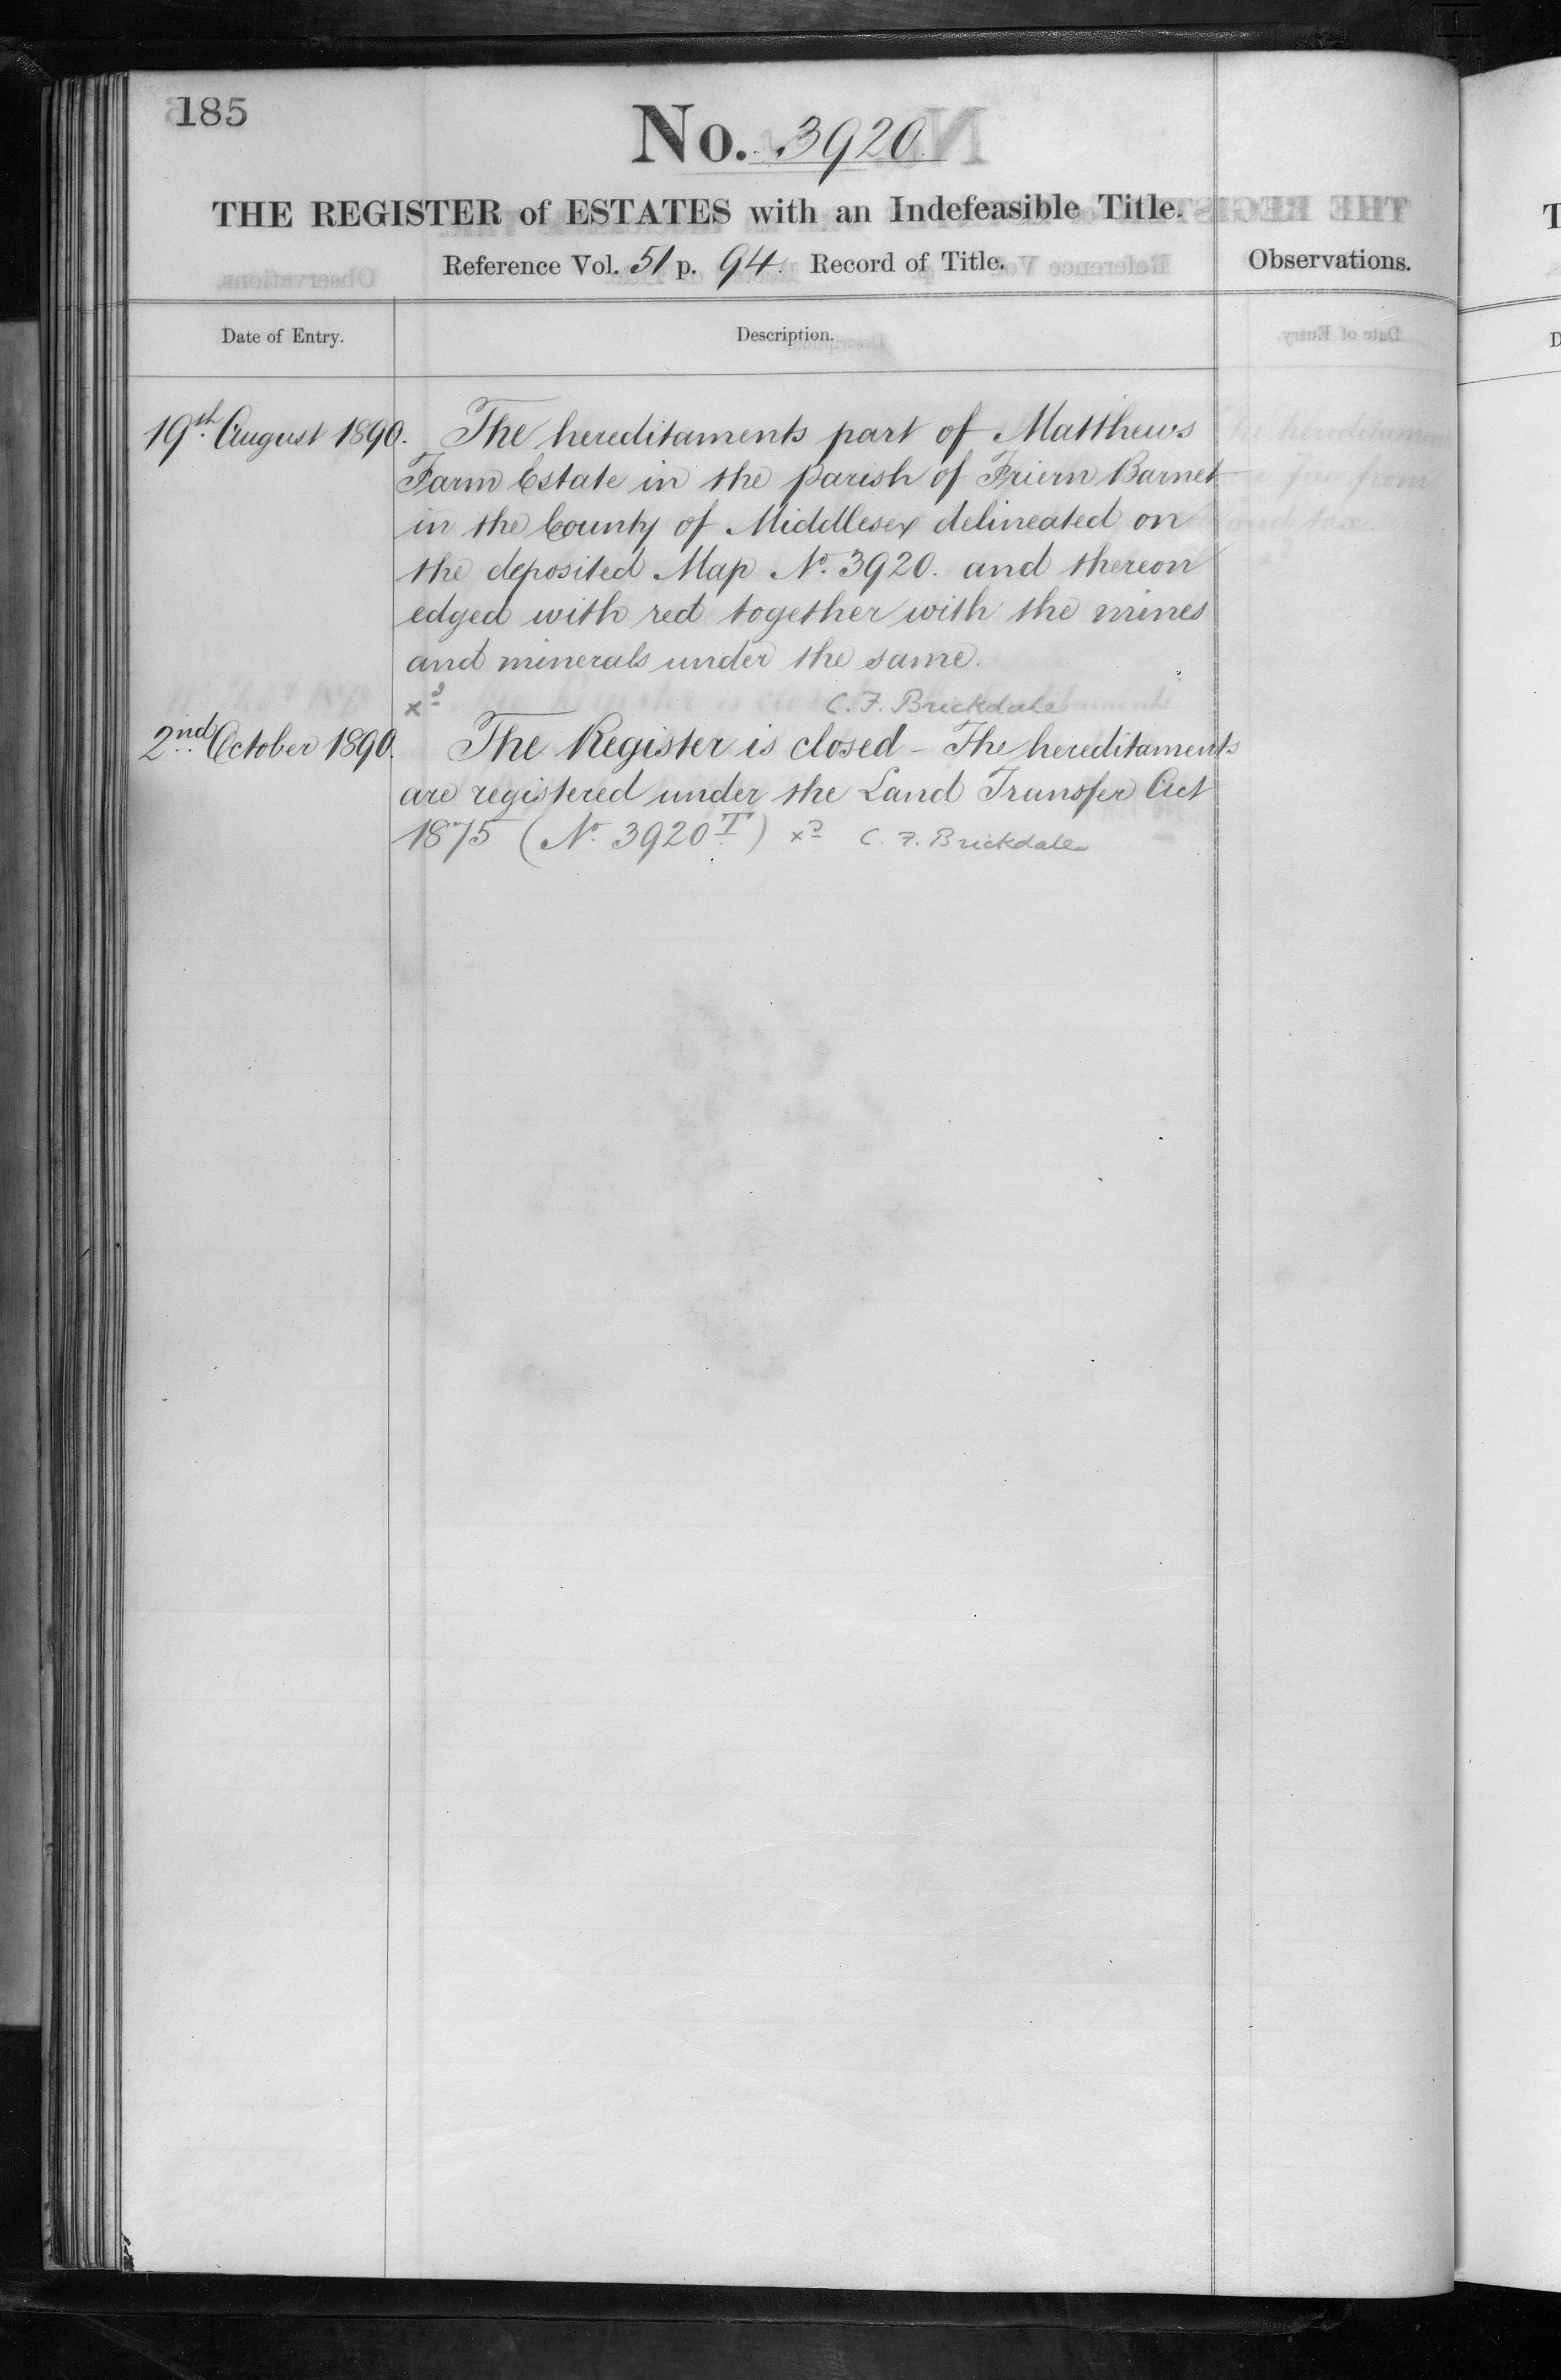 185
No. 3920.
THE REGISTER of ESTATES with an Indefeasible Title.
Reference Vol. 51 p. 94. Record of Title.
Observations.
Date of Entry.
Description.
19th August 1890. The hereditaments part of Matthews
Farm Estate in the parish of Friern Barnet
in the County of Middlesex delineated on
the deposited Map No. 3920. and thereon
edged with red together with the mines
and minerals under the same.
xd C. F. Brickdale
2nd October 1890. The Register is closed - The hereditaments
are registered under the Land Transfer Act
1875 (No. 3920 T) xd C. F. Brickdale